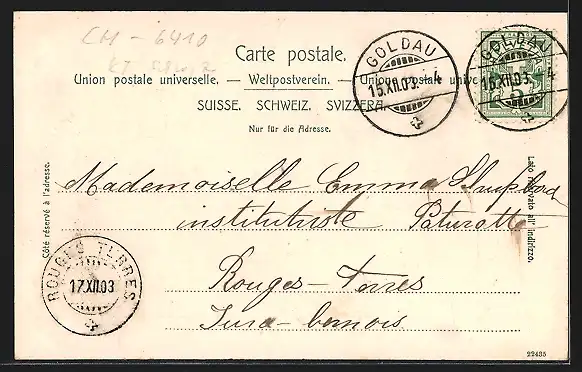 CH - 6410
KT
Carte postale.
Union postale universelle. — Weltpostverein. — Unione postale
SUISSE. SCHWEIZ. SVIZZERA.
Nur für die Adresse.
GOLDAU
15.XII.03. 4
GOLDAU
15.XII.03. 4
5
Côté réservé à l'adresse.
Lato all' indirizzo.
Mademoiselle Emma
institutriste
Rouges-Terres
Jura-bernois
ROUGES TERRES
17.XII.03
22435